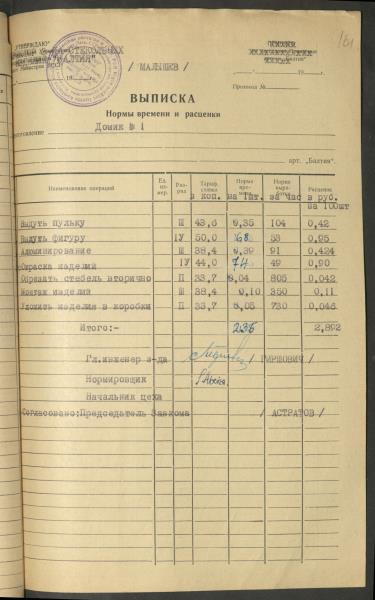 "УТВЕРЖДАЮ"
СТЕКОЛЬНЫХ
"БАЛТИЯ"
/ МАЛЫШЕВ /
181
"Балтия"
" " 19 г.
Протокол №
ВЫПИСКА
Нормы времени и расценки
Домик № 1
арт. „Балтия“.
Наименование операций Ед. измер. Разряд Тариф. ставка в коп. Норма времени на 1шт. Норма выработки за час Расценок в руб. на 100шт
Выдуть пульку Ш 43,6 0,35 104 0,42
Выдуть фигуру 1У 50,0 68 53 0,95
Алюминирование Ш 38,4 0,39 91 0,424
Окраска изделий 1У 44,0 74 49 0,90
Обрезать стебель вторично П 33,7 0,04 805 0,042
Монтаж изделий Ш 38,4 0,10 350 0,11
Уложить изделия в коробки П 33,7 0,05 730 0,046
Итого:- 236 2,892
Гл.инженер з-да / ГИРШОВИЧ /
Нормировщик
Начальник цеха
Согласовано:Председатель Завкома / АСТРАТОВ /